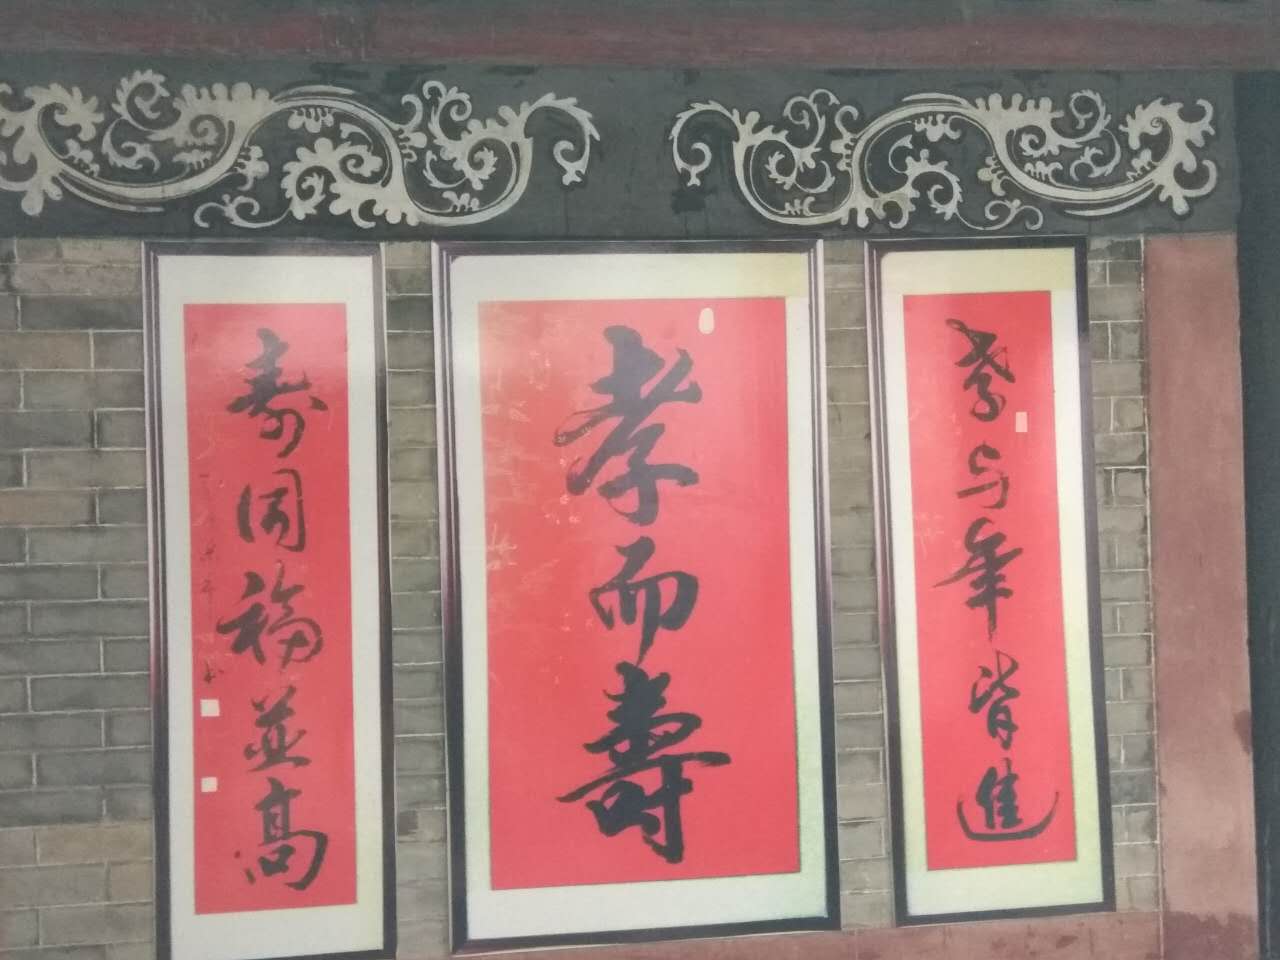 孝与年皆進
孝而壽
寿同福並高